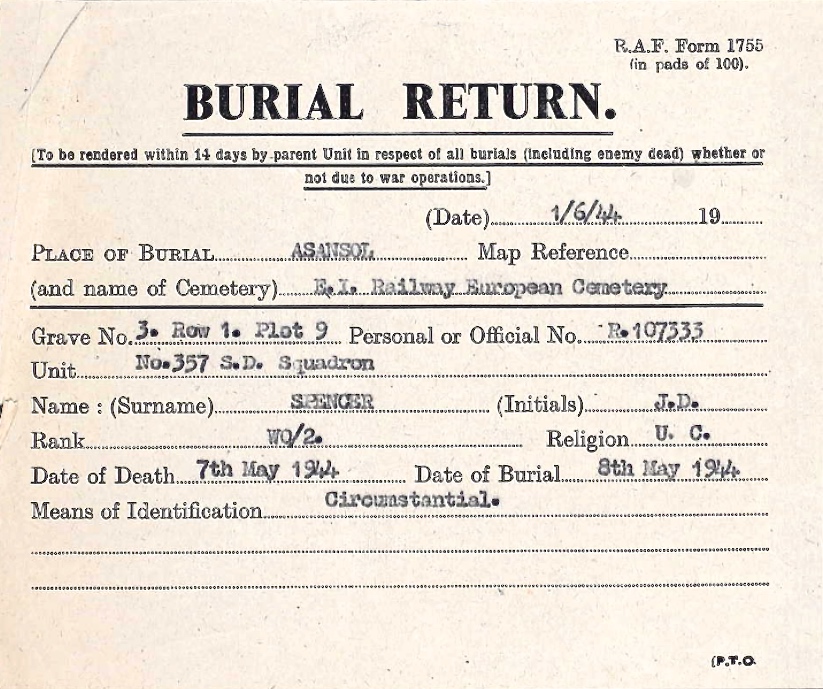 R.A.F. Form 1755
(in pads of 100).
BURIAL RETURN.
[To be rendered within 14 days by parent Unit in respect of all burials (including enemy dead) whether or
not due to war operations.]
(Date) 1/6/44 19
PLACE OF BURIAL ASANSOL Map Reference
(and name of Cemetery) E.I. Railway European Cemetery
Grave No. 3. Row 1. Plot 9 Personal or Official No. R.107333
Unit No.357 S.D. Squadron
Name : (Surname) SPENCER (Initials) J.D.
Rank WO/2. Religion U. C.
Date of Death 7th May 1944 Date of Burial 8th May 1944
Means of Identification Circumstantial.
(P.T.O.